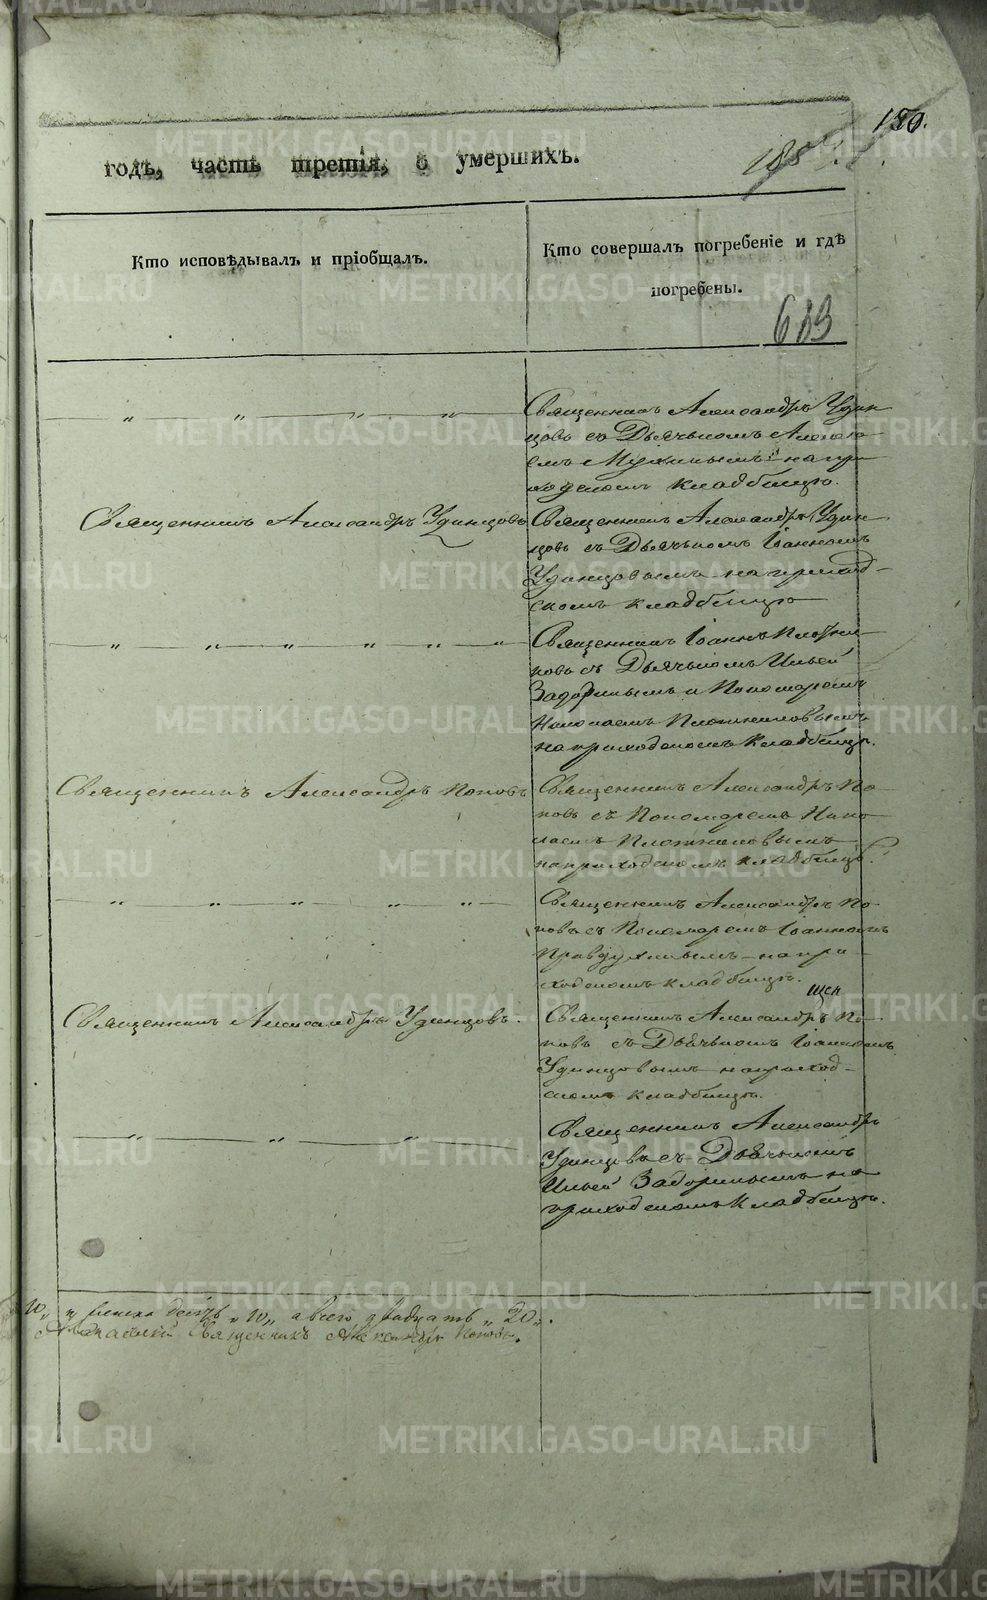 150.
годъ, часть третія, о умершихъ.
185
Кто исповѣдывалъ и пріобщалъ.
Кто совершалъ погребеніе и гдѣ
погребены.
683
Священникъ Александръ Удин
цовъ съ Дьячькомъ Алексе-
емъ Мухинымъ на при
ходскомъ кладбищѣ.
Священникъ Александръ Удинцовъ
Священникъ Александръ Удин-
цовъ съ Дьячькомъ Іоанномъ
Удинцовымъ на приход-
скомъ кладбищѣ
Священникъ Іоаннъ Плотни-
ковъ съ Дьячькомъ Ильей
Задоринымъ и Пономаремъ
Николаемъ Плотниковымъ
на приходскомъ кладбищѣ.
Священникъ Александръ Поповъ
Священникъ Александръ По-
повъ съ Пономаремъ Нико
лаемъ Плотниковымъ
на приходскомъ кладбищѣ.
Священникъ Александръ По-
повъ съ Пономаремъ Іоанномъ
на при-
ходскомъ кладбищѣ.
Священникъ Александръ Удинцовъ.
Священникъ Александръ По-
повъ съ Дьячькомъ Іоанномъ
Удинцовымъ на приход-
скомъ кладбищѣ.
Священникъ Александръ
Удинцовъ съ Дьячькомъ
Ильей Задоринымъ на
приходскомъ кладбищѣ.
женска десять „10„ а всего двадцать „20„.
Священникъ Александръ Поповъ.
METRIKI.GASO-URAL.RU